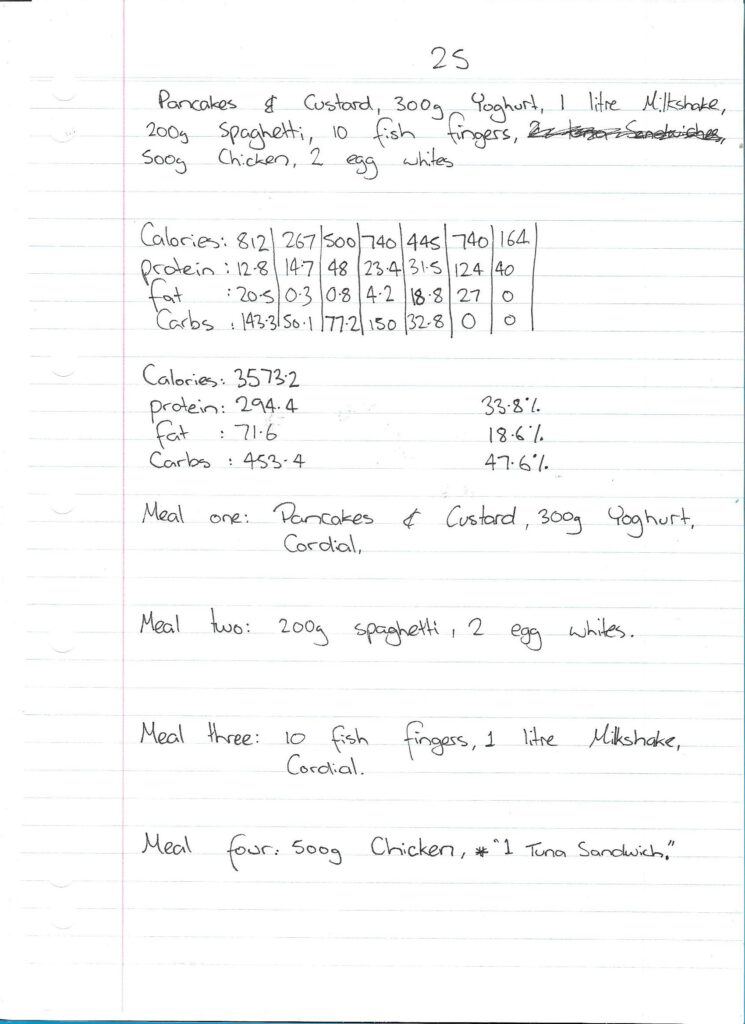 25
Pancakes & Custard, 300g Yoghurt, 1 litre Milkshake,
200g Spaghetti, 10 fish fingers, 2 tuna Sandwiches,
500g Chicken, 2 egg whites
Calories: 812 | 267 | 500 | 740 | 445 | 740 | 164
protein : 12.8 | 14.7 | 48 | 23.4 | 31.5 | 124 | 40
fat : 20.5 | 0.3 | 0.8 | 4.2 | 18.8 | 27 | 0
Carbs : 143.3 | 50.1 | 77.2 | 150 | 32.8 | 0 | 0
Calories: 3573.2
protein: 294.4 33.8%
fat : 71.6 18.6%
Carbs : 453.4 47.6%
Meal one: Pancakes & Custard, 300g Yoghurt,
Cordial,
Meal two: 200g spaghetti, 2 egg whites.
Meal three: 10 fish fingers, 1 litre Milkshake,
Cordial.
Meal four: 500g Chicken, * "1 Tuna Sandwich."